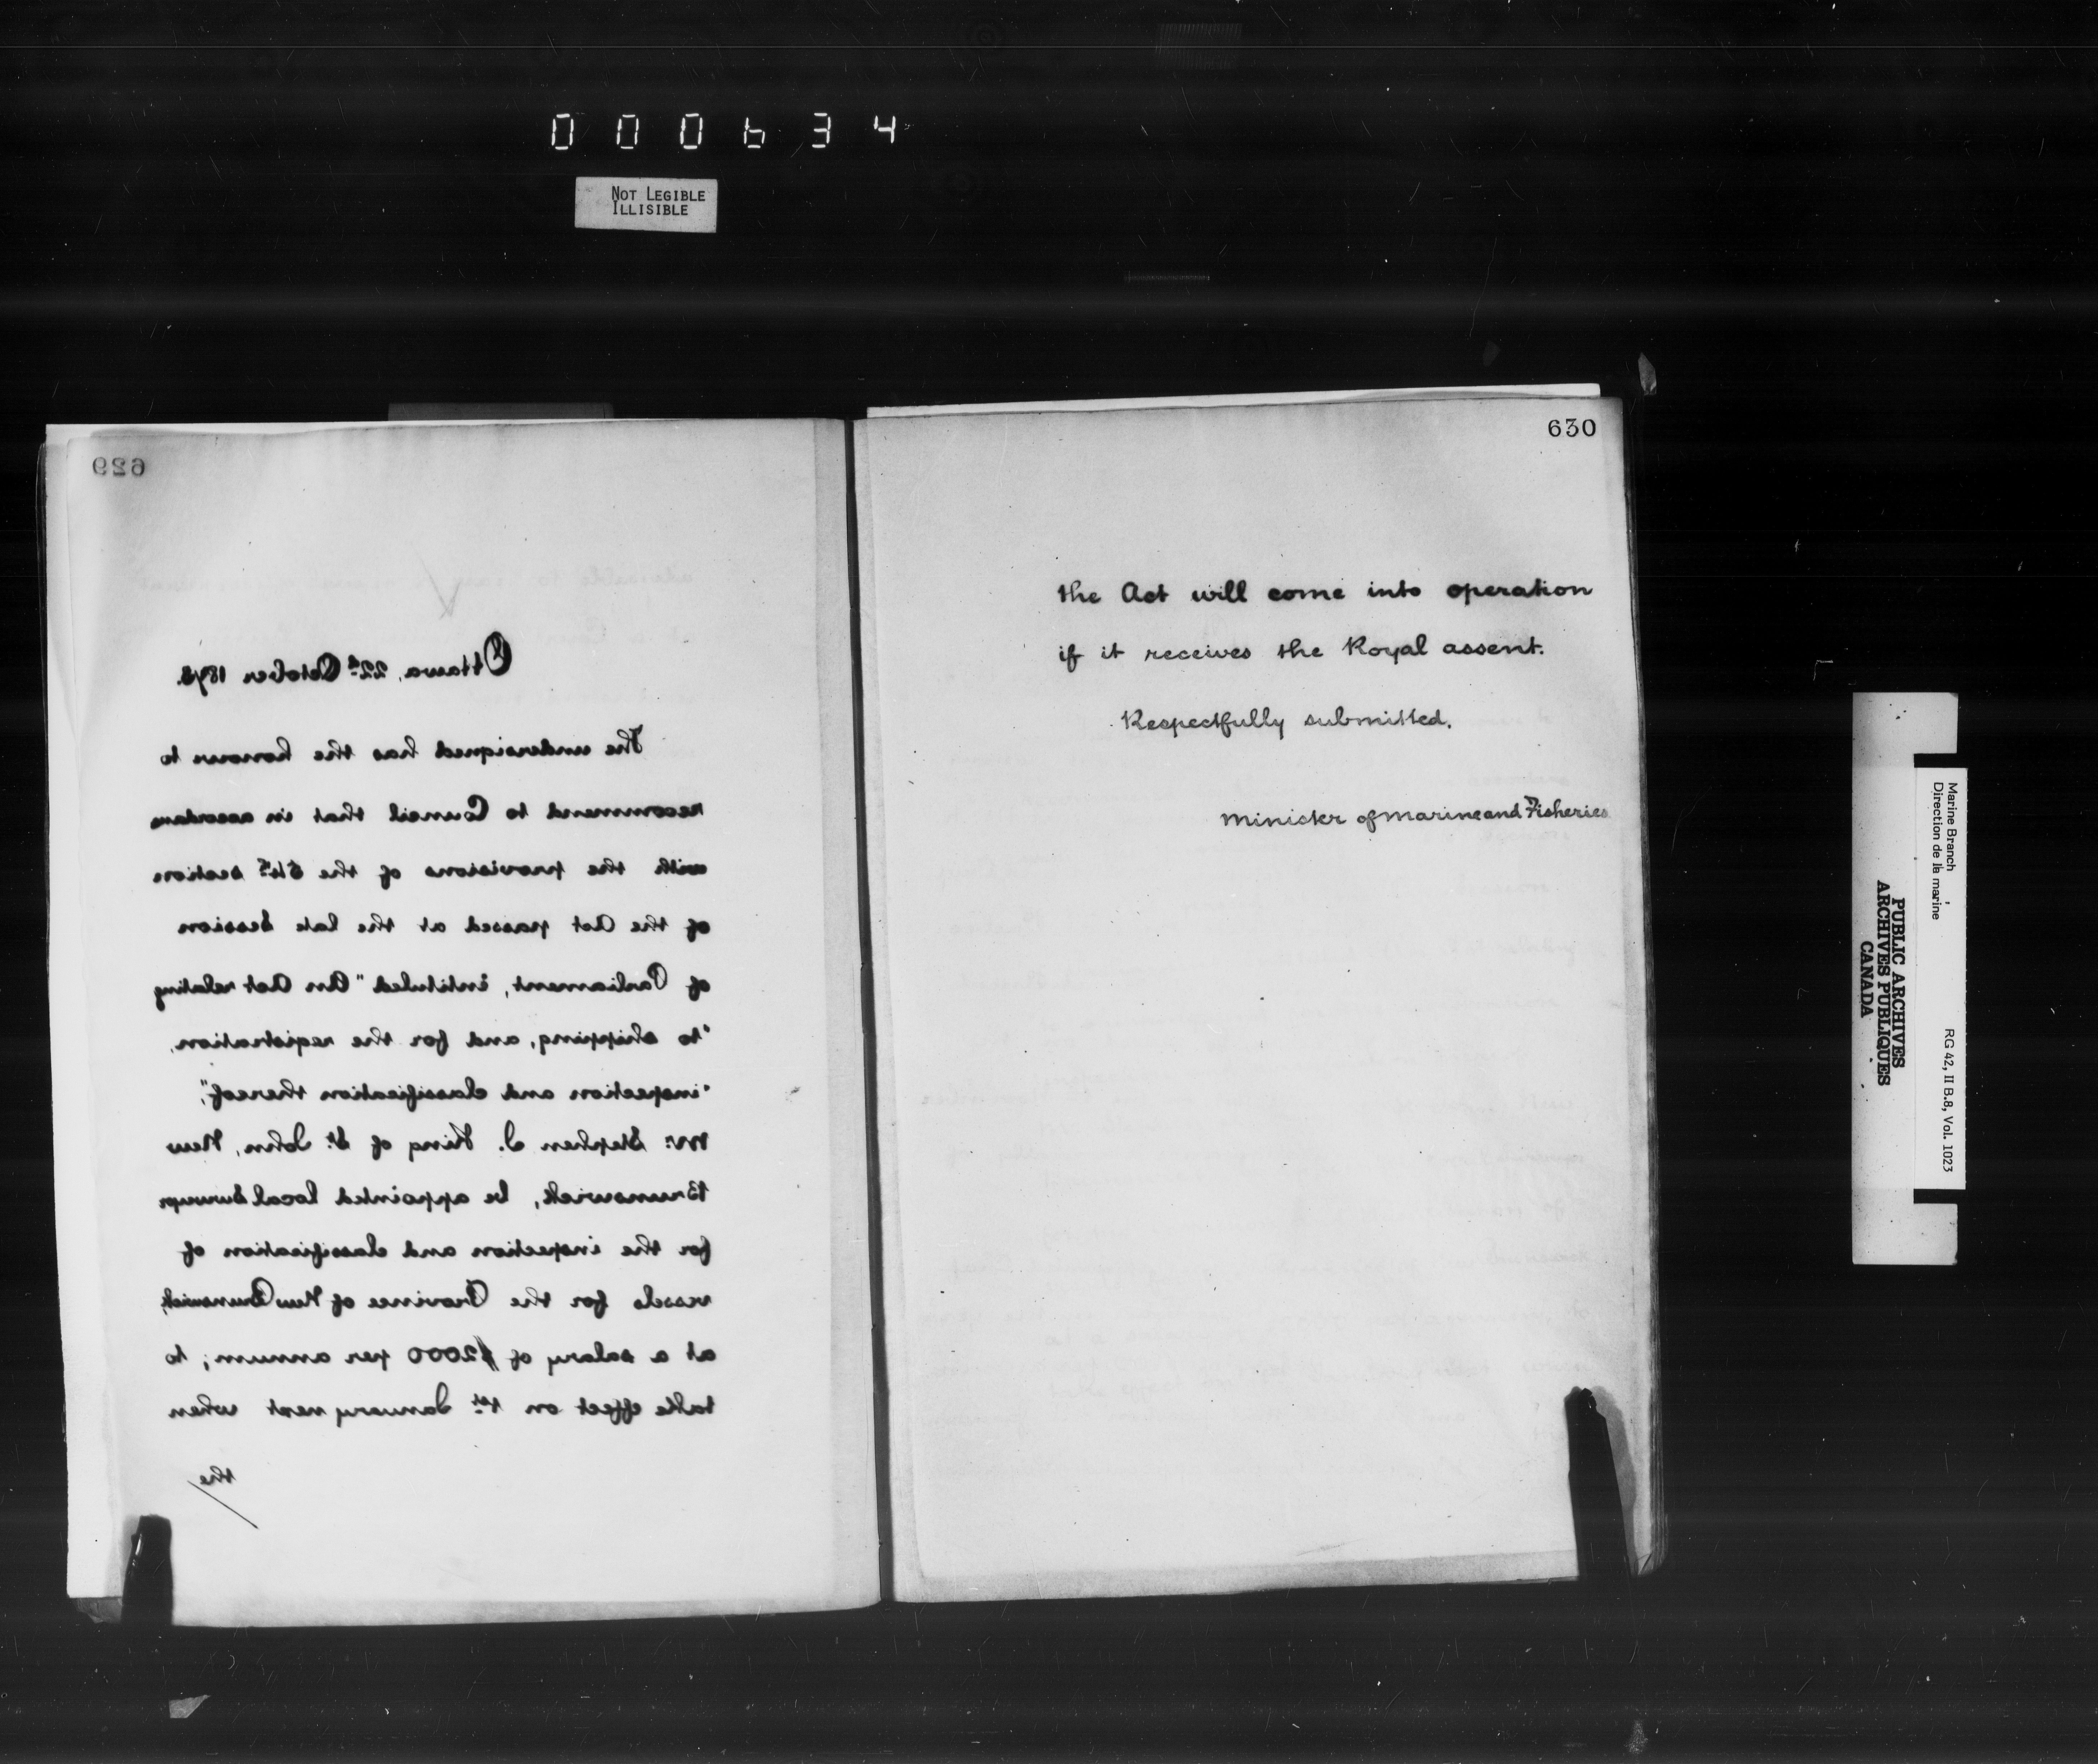 000634
NOT LEGIBLE
ILLISIBLE
629
Ottawa, 22d October 1873.
The undersigned has the honour to
recommend to Council that in accordance
with the provisions of the 54th section
of the Act passed at the late Session
of Parliament, intituled "An Act relating
"to shipping, and for the registration,
"inspection and classification thereof",
Mr. Stephen J. King of St. John, New
Brunswick, be appointed local Surveyor
for the inspection and classification of
vessels for the Province of New Brunswick,
at a salary of $2000 per annum; to
take effect on 1st January next when
the
630
the Act will come into operation
if it receives the Royal assent.
Respectfully submitted.
Minister of Marine and Fisheries
Marine Branch
Direction de la marine
RG 42, II B.8, Vol. 1023
PUBLIC ARCHIVES
ARCHIVES PUBLIQUES
CANADA